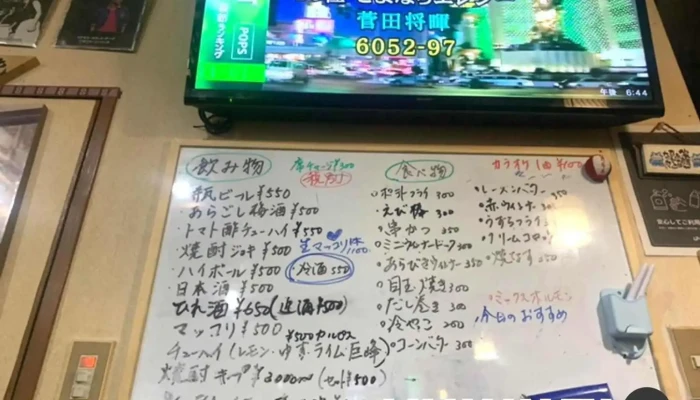 菅田将暉
6052-97
POPS
午後 6:44
飲み物
席チャージ¥300
税別
食べ物
カラオケ1曲¥100
・瓶ビール¥550
・あらごし梅酒¥500
・トマト酢チューハイ¥550
・焼酎ジョッキ¥500
生マッコリ
・ハイボール¥500
冷酒550
・日本酒 ¥500
ひれ酒¥650(追酒¥500)
マッコリ¥500
¥500カルピス
チューハイ(レモン・ゆず・ライム・巨峰)
焼酎キープ¥2000
(セット¥500)
・ポテトフライ 300
・串かつ 350
・ミニウィンナードーナツ300
・あらびきウィンナー350
・目玉焼き300
・だし巻き 300
・冷やっこ 200
・コーンバター 300
・レーズンバター 350
・赤ウィンナー
・うずらフライ
・クリームコロッケ
・焼なす 350
・ミックスホルモン
今日のおすすめ